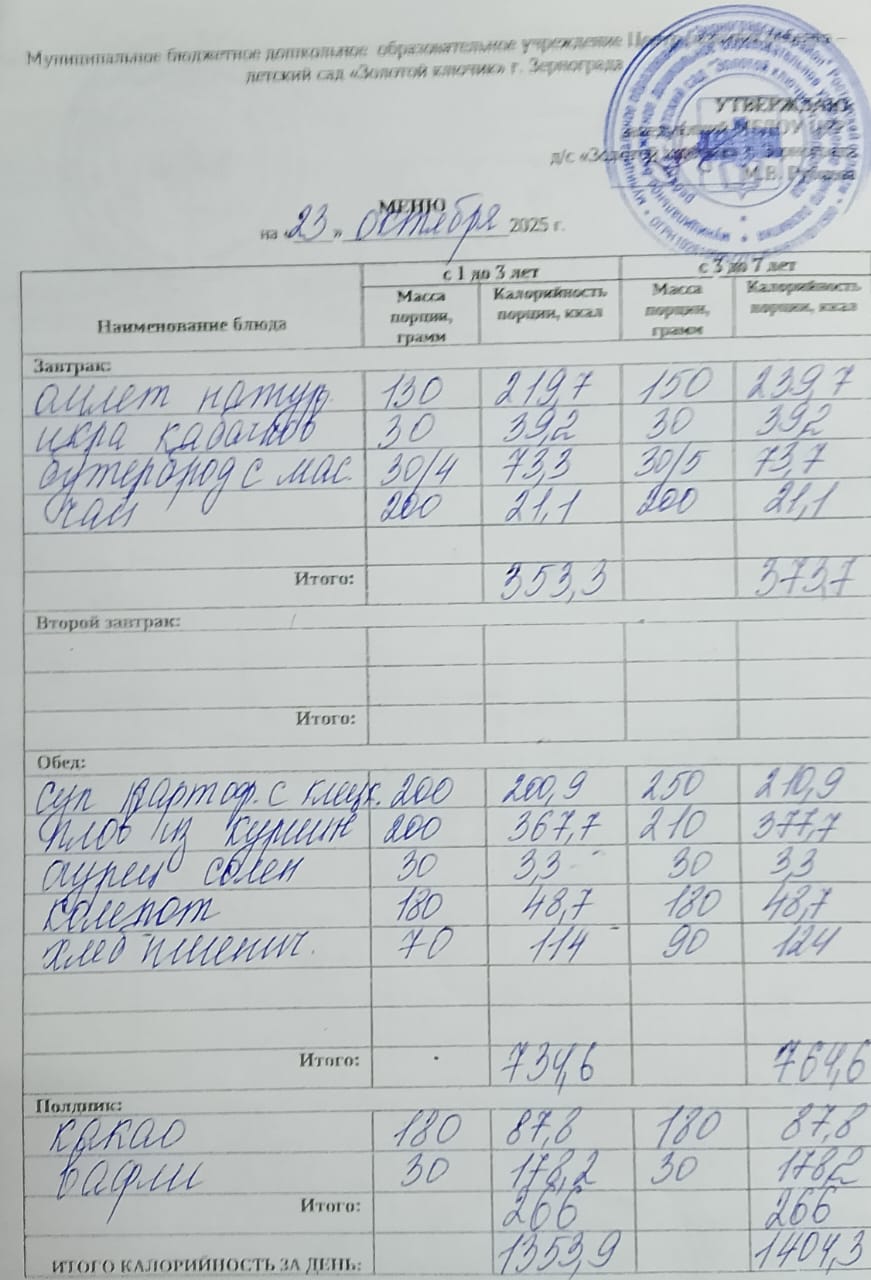 Муниципальное бюджетное дошкольное образовательное учреждение
детский сад «Золотой ключик» г. Зернограда
УТВЕРЖДАЮ
д/с «Золотой
МЕНЮ
на «23» октября 2025 г.
Наименование блюда с 1 до 3 лет с 3 до 7 лет
Масса порции, грамм Калорийность порции, ккал Масса порции, грамм Калорийность порции, ккал
Завтрак:
омлет натур. 130 219,7 150 239,7
икра кабачков 30 39,2 30 39,2
бутерброд с мас. 30/4 73,3 30/5 73,7
чай 200 21,1 200 21,1
Итого: 353,3 373,7
Второй завтрак:
Итого:
Обед:
суп картоф. с клецк. 200 200,9 250 210,9
плов из курицы 200 367,7 210 377,7
огурец солен 30 3,3 30 3,3
компот 180 48,7 180 48,7
хлеб пшенич. 70 114 90 124
Итого: 734,6 764,6
Полдник:
какао 180 87,8 180 87,8
вафли 30 178,2 30 178,2
Итого: 266 266
ИТОГО КАЛОРИЙНОСТЬ ЗА ДЕНЬ: 1353,9 1404,3